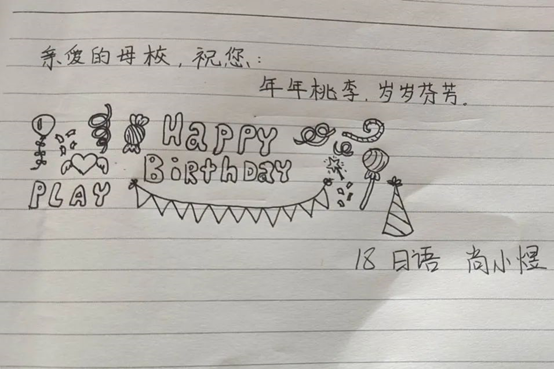 亲爱的母校，祝您：
年年桃李，岁岁芬芳。
HAPPY
BiRthDAY
PLAY
18 日语 尚小煜